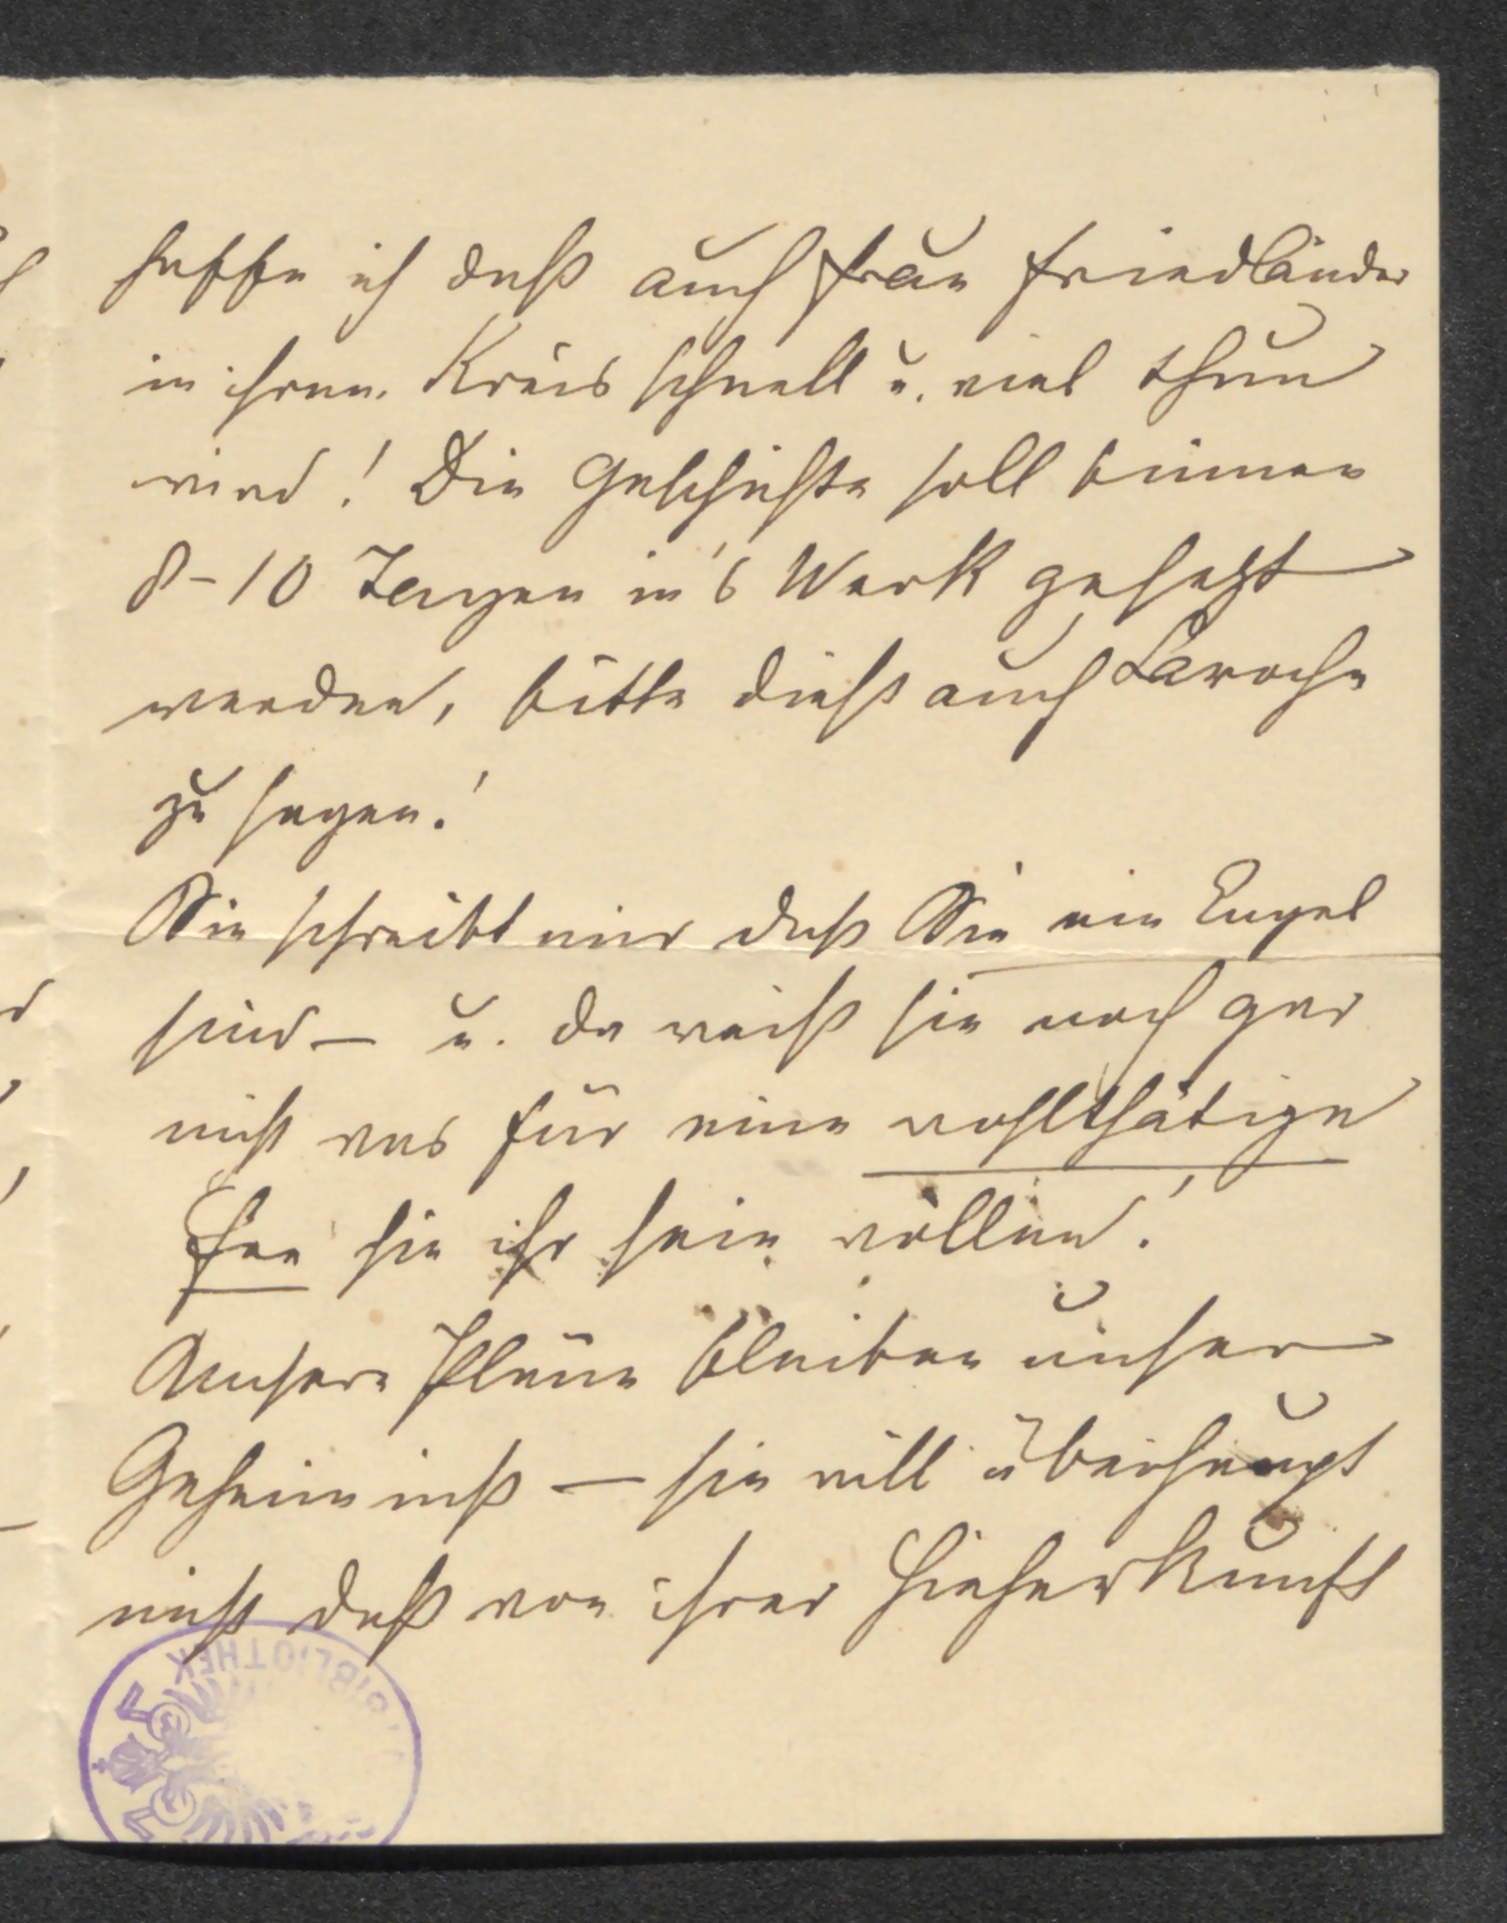 hoffe ich daß auch Frau Friedländer
in ihrem Kreis schnell u. viel thun
wird! Die Geschichte soll binnen
8-10 Tagen in's Werk gesetzt
werden, bitte dieß auch Laroche
zu sagen!
Sie schreibt mir daß Sie ein Engel
sind — u. da weiß sie noch gar
nicht was für eine wohlthätige
Fee sie ihr sein wollen!
Unsere Pläne bleiben unser
Geheimniß — sie will überhaupt
nicht daß von ihrer Hieherkunft
BIBLIOTHEK